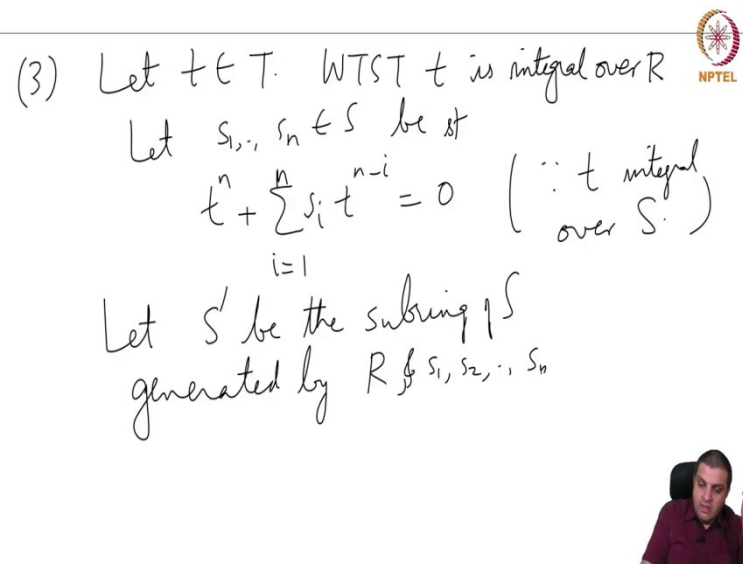 (3) Let t ∈ T. WTST t is integral over R
NPTEL
Let s₁,.., sₙ ∈ S be st
tⁿ + Σᵢ₌₁ⁿ sᵢ tⁿ⁻ⁱ = 0 ( ∵ t integral
over S. )
Let S' be the subring of S
generated by R & s₁, s₂, .., sₙ